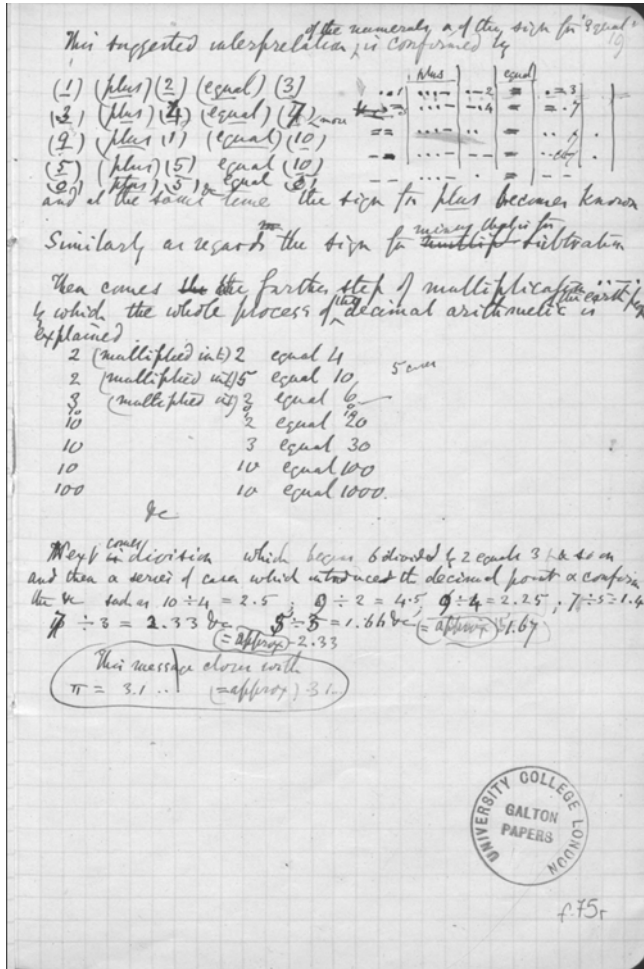 of the numerals & of the sign for "equal"
19
This suggested interpretation, is confirmed by
plus equal
(1) (plus) (2) (equal) (3)
(3) (plus) (4) (equal) (7)
(9) (plus (1) (equal) (10)
(5) (plus) (5) equal (10)
plus 5 equal
and at the same time the sign for plus becomes known
Similarly as regards the sign for subtration
Then comes the further step of multiplication
by which the whole process of decimal arithmetic is
explained
2 (multiplied into) 2 equal 4
2 (multiplied into) 5 equal 10
3 (multiplied into) 2 equal 6
10 2 equal 20
10 3 equal 30
10 10 equal 100
100 10 equal 1000.
&c
comes
Next division which begins 6 divided by 2 equals 3 & so on
and then a series of cases which introduced the decimal point & confirm
the &c such as 10 ÷ 4 = 2.5, 9 ÷ 2 = 4.5, 9 ÷ 4 = 2.25, 7 ÷ 5 = 1.4
7 ÷ 3 = 2.33 &c 5 ÷ 3 = 1.66 &c (= approx) 1.67
(= approx) 2.33
This message closes with
π = 3.1 .. (= approx) 3.1
UNIVERSITY COLLEGE LONDON
GALTON
PAPERS
f.75r